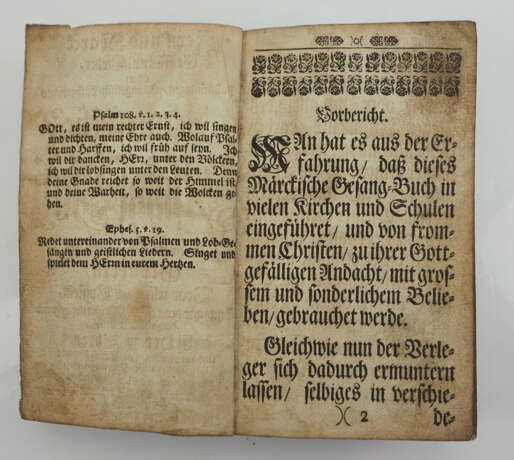 Psalm 108. v. 1. 2. 3. 4.
GOtt, es ist mein rechter Ernst, ich wil singen
und dichten, meine Ehre auch. Wolauf Psal-
ter und Harffen, ich wil früh auf seyn. Ich
wil dir dancken, HErr, unter den Völckern,
ich wil dir lobsingen unter den Leuten. Denn
deine Gnade reichet so weit der Himmel ist,
und deine Warheit, so weit die Wolcken ge-
hen.
Ephes. 5. v. 19.
Redet untereinander von Psalmen und Lob-Ge-
sängen und geistlichen Liedern. Singet und
spielet dem HErrn in eurem Hertzen.
Vorbericht.
MAn hat es aus der Er-
fahrung/ daß dieses
Märckische Gesang-Buch in
vielen Kirchen und Schulen
eingeführet/ und von from-
men Christen/ zu ihrer Gott-
gefälligen Andacht/ mit gros-
sem und sonderlichem Belie-
ben/ gebrauchet werde.
Gleichwie nun der Verle-
ger sich dadurch ermuntern
lassen/ selbiges in verschie-
)( 2 de-